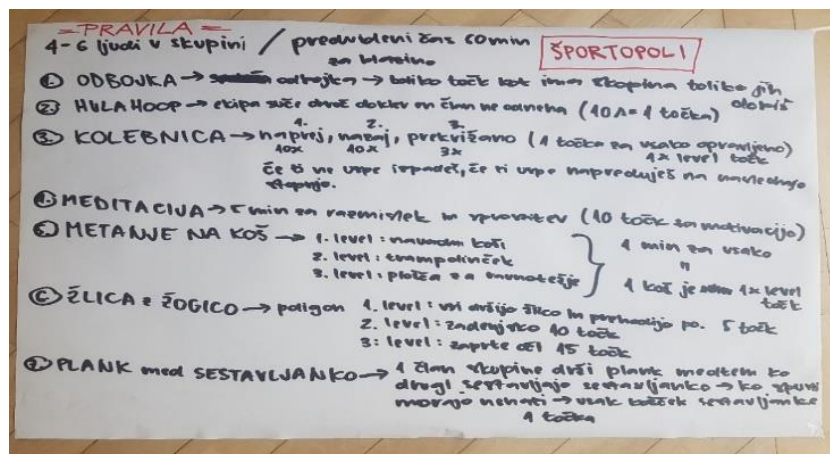 = PRAVILA =
4-6 ljudi v skupini / predvideni čas 60min
za blazino
ŠPORTOPOLI
1. ODBOJKA → odbojka → toliko točk kot ima skupina toliko jih
dobiš
2. HULA HOOP → ekipa suče obroč dokler en član ne odneha (10 = 1 točka)
1. 2. 3.
3. KOLEBNICA → naprej, nazaj, prekrižano (1 točka za vsako opravljeno)
10x 10x 3x 1x level točk
če ti ne uspe izpadeš, če ti uspe napreduješ na naslednjo
stopnjo.
4. MEDITACIJA → 5 min za razmislek in sprostitev (10 točk za motivacijo)
5. METANJE NA KOŠ → 1. level: navadni koši
2. level: trampolinček
3. level: plošča za ravnotežje
1 min za vsako
1 koš je 1x level
točk
6. ŽLICA z ŽOGICO → poligon 1. level: vsi držijo žlico in prehodijo po. 5 točk
2. level: zadenjsko 10 točk
3: level: zaprte oči 15 točk
7. PLANK med SESTAVLJANKO → 1 član skupine drži plank medtem ko
drugi sestavljajo sestavljanko → ko spusti
morajo nehati → vsak košček sestavljanke
1 točka